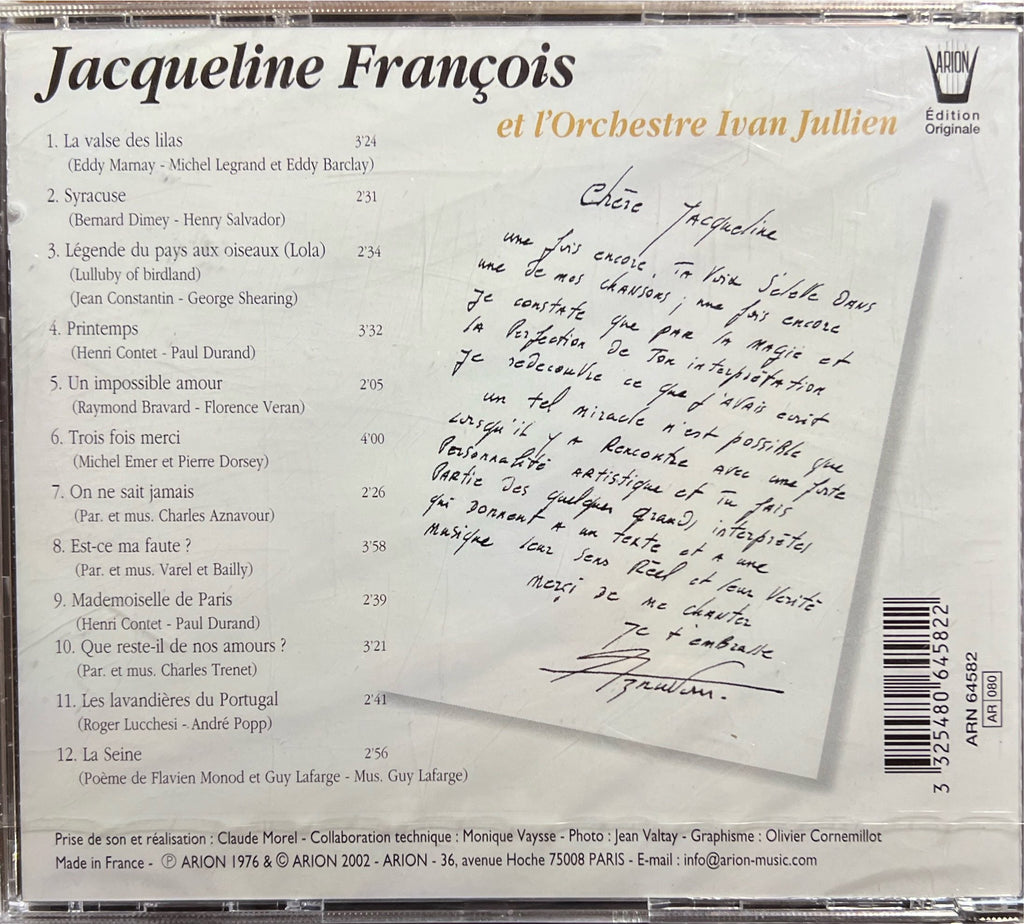 Jacqueline François
et l'Orchestre Ivan Jullien
ARION
Édition
Originale
1. La valse des lilas 3'24
(Eddy Marnay - Michel Legrand et Eddy Barclay)
2. Syracuse 2'31
(Bernard Dimey - Henry Salvador)
3. Légende du pays aux oiseaux (Lola) 2'34
(Lulluby of birdland)
(Jean Constantin - George Shearing)
4. Printemps 3'32
(Henri Contet - Paul Durand)
5. Un impossible amour 2'05
(Raymond Bravard - Florence Veran)
6. Trois fois merci 4'00
(Michel Emer et Pierre Dorsey)
7. On ne sait jamais 2'26
(Par. et mus. Charles Aznavour)
8. Est-ce ma faute ? 3'58
(Par. et mus. Varel et Bailly)
9. Mademoiselle de Paris 2'39
(Henri Contet - Paul Durand)
10. Que reste-il de nos amours ? 3'21
(Par. et mus. Charles Trenet)
11. Les lavandières du Portugal 2'41
(Roger Lucchesi - André Popp)
12. La Seine 2'56
(Poème de Flavien Monod et Guy Lafarge - Mus. Guy Lafarge)
Chère Jacqueline
une fois encore, ta voix s'élève dans
une de mes chansons ; une fois encore
je constate que par la magie et
la perfection de ton interprétation
je redécouvre ce que j'avais écrit
un tel miracle n'est possible que
lorsqu'il y a rencontre avec une forte
personnalité artistique et tu fais
partie des quelques grands interprètes
qui donnent a un texte et a une
musique leur sens réel et leur vérité
merçi de me chanter
je t'embrasse
Aznavour.
3 325480 645822
ARN 64582
AR 080
Prise de son et réalisation : Claude Morel - Collaboration technique : Monique Vaysse - Photo : Jean Valtay - Graphisme : Olivier Cornemillot
Made in France - ℗ ARION 1976 & © ARION 2002 - ARION - 36, avenue Hoche 75008 PARIS - E-mail : info@arion-music.com